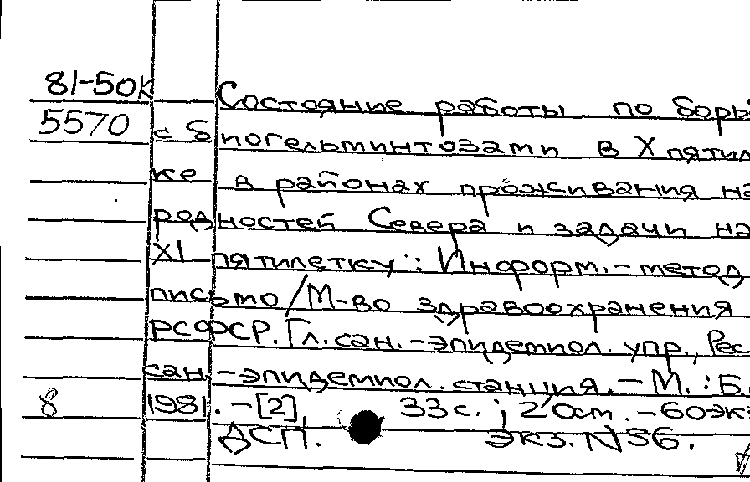 81-50К
5570
Состояние работы по борь
с биогельминтозами в X пятил
ке в районах проживания на
родностей Севера и задачи на
XI пятилетку: Информ.-метод
письмо/М-во здравоохранения
РСФСР. Гл. сан.-эпидемиол. упр., Рес
сан.-эпидемиол. станция.-М.: Б.
8 1981.-[2], 33 с.; 20 см.-60 эк
ДСП. Экз. N 56.